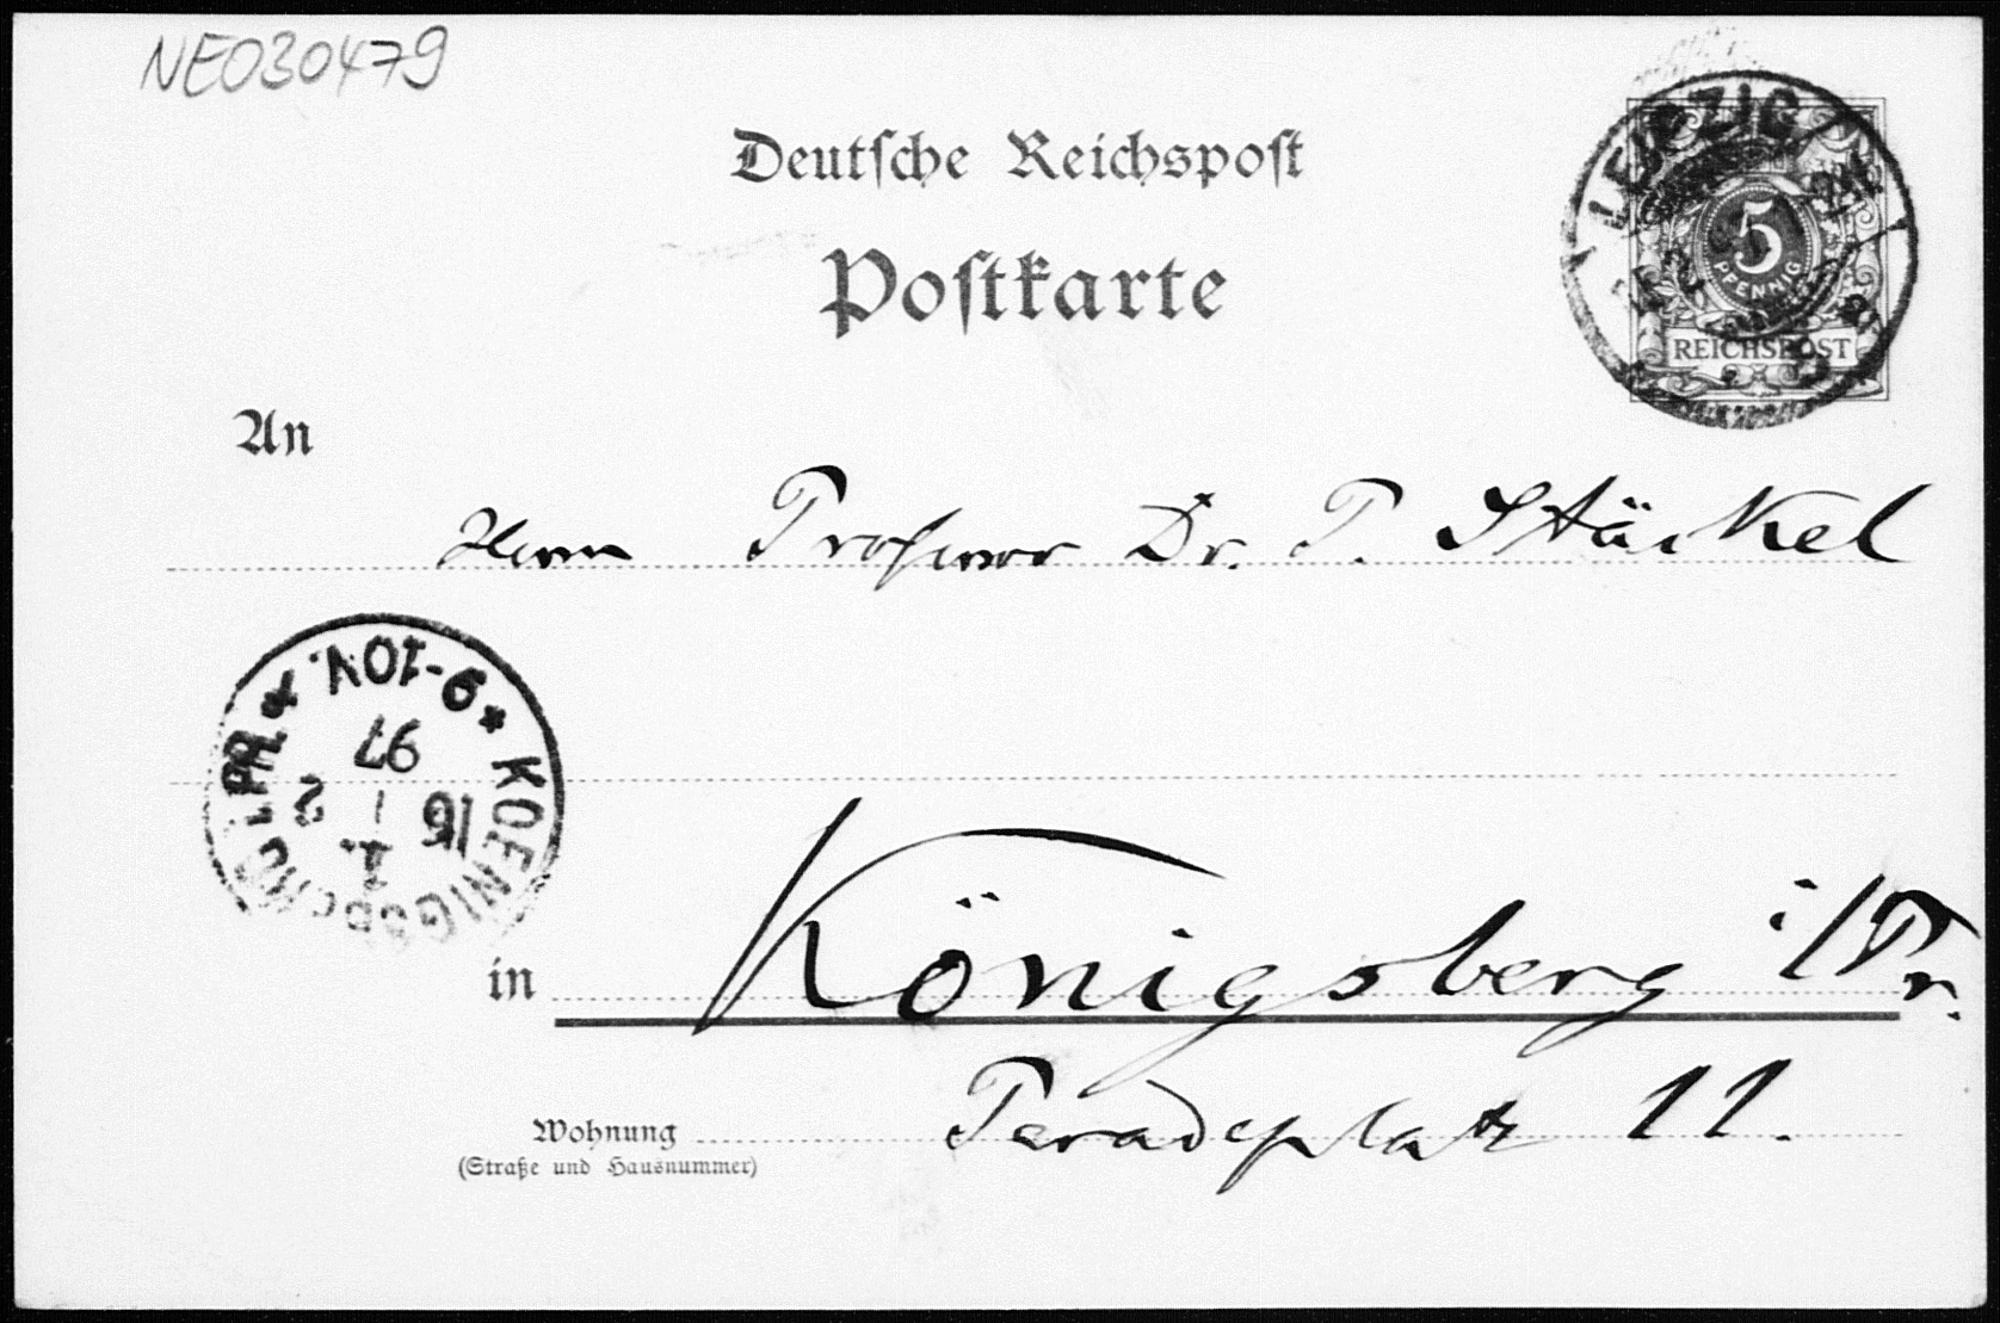 NE030479
Deutsche Reichspost
Postkarte
LEIPZIG
5
PFENNIG
REICHSPOST
An
Herrn Professor Dr. P. Stäckel
* 9-10V. *
97
16 | 2
1.
KOENIGSBERG I. PR.
in Königsberg i/Pr.
Wohnung Paradeplatz 11.
(Straße und Hausnummer)